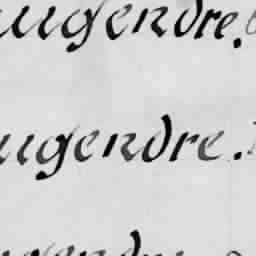 ugendre.
ugendre.